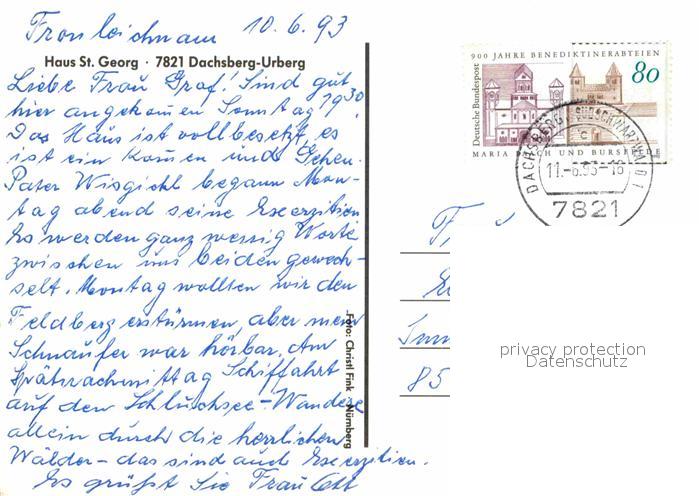 Fronleichnam 10.6.93
Haus St. Georg · 7821 Dachsberg-Urberg
Liebe Frau Graf! Sind gut
hier angekommen Sonntag 19 30.
Das Haus ist vollbesetzt, es
ist ein Kommen und Gehen.
Pater begann Mon-
tag abend seine Exerzitien
Es werden ganz wenig Worte
zwischen uns beiden gewech-
selt. Montag wollten wir den
Feldberg erstürmen, aber mein
Schnaufer war hörbar. Am
Spätnachmittag Schiffahrt
auf dem Schluchsee - Wandere
allein durch die herrlichen
Wälder - das sind auch Exerzitien.
Es grüßt Sie Frau Ott
Foto: Christl Fink Nürnberg
900 JAHRE BENEDIKTINERABTEIEN
80
Deutsche Bundespost
MARIA LAACH UND BURSFELDE
DACHSBERG (SÜDSCHWARZWALD) 1
c
11.-6.93-16
7821
85
privacy protection
Datenschutz